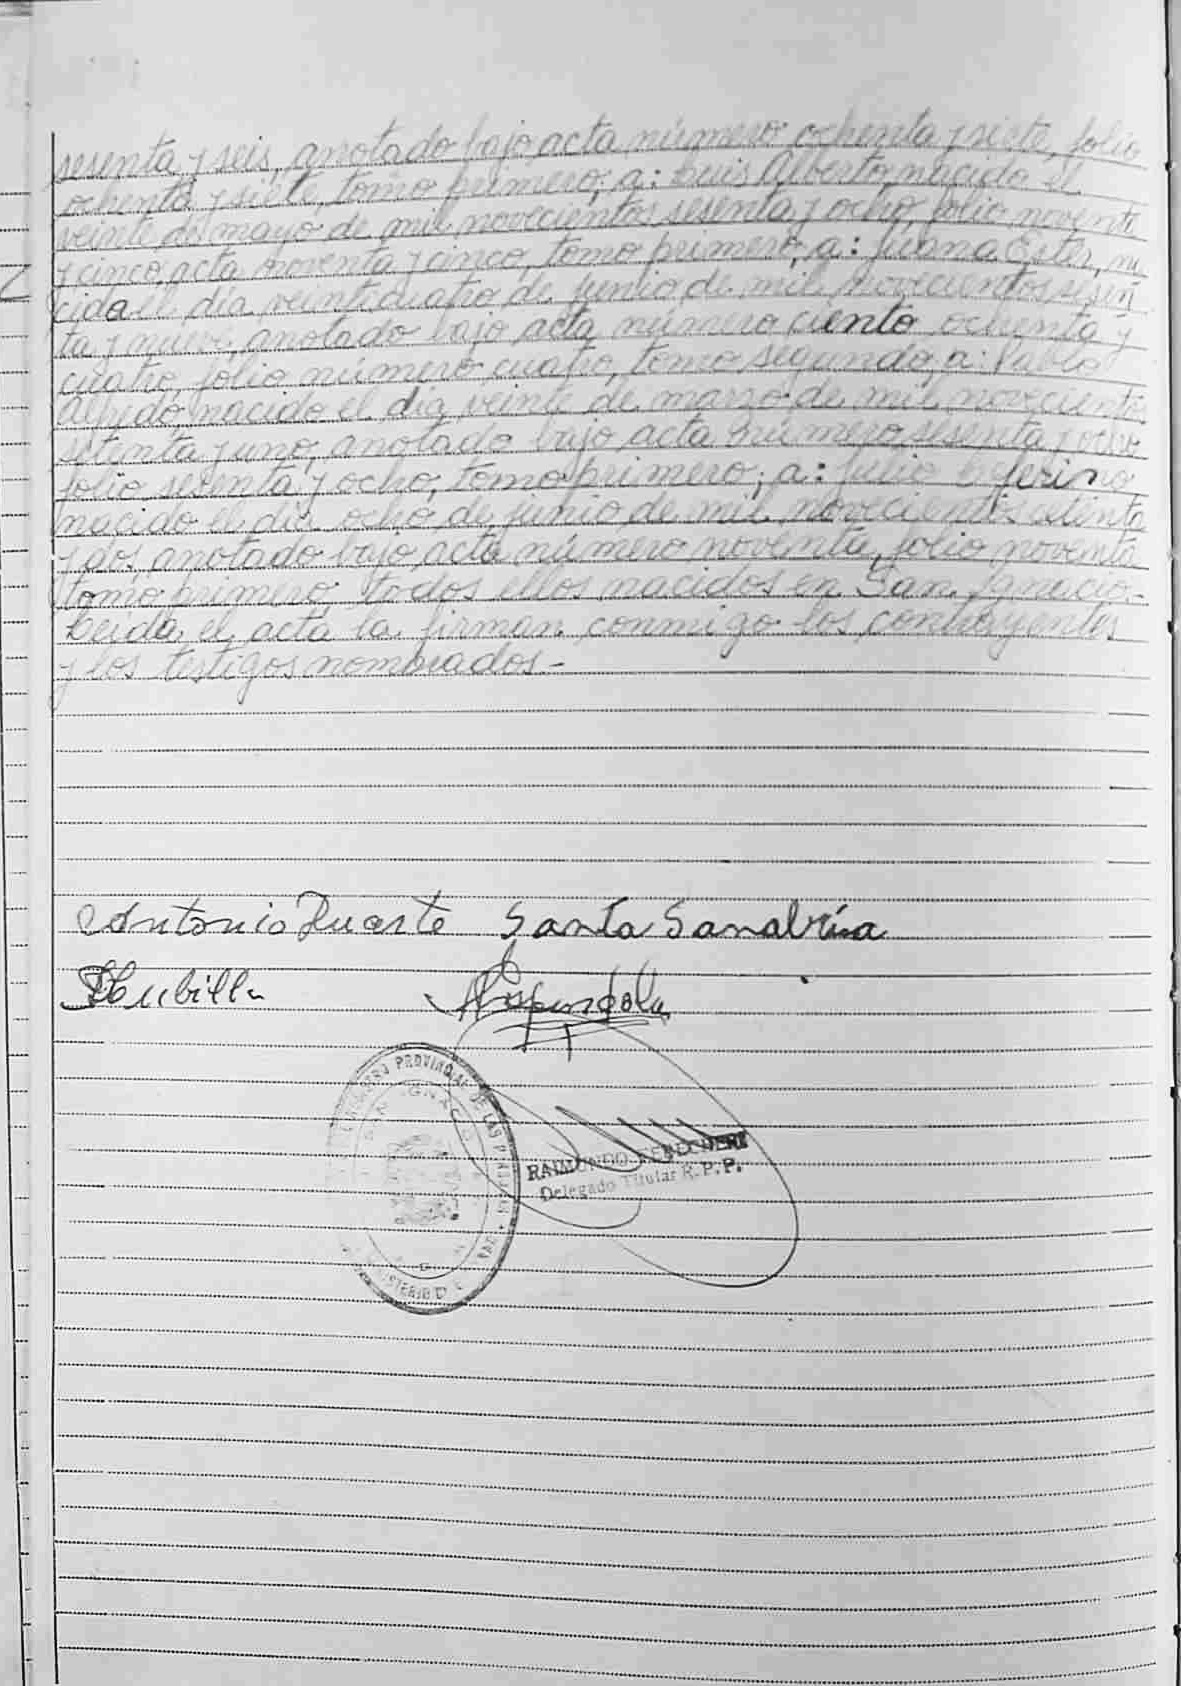 sesenta y seis, anotado bajo acta número ochenta y siete, folio
ochenta y siete, tomo primero; a: Luis Alberto, nacido el
veinte de mayo de mil novecientos sesenta y ocho, folio noventa
y cinco, acta noventa y cinco, tomo primero, a: Juana Ester, na
cida el día veinticuatro de junio de mil novecientos sesen
ta y nueve, anotado bajo acta número ciento ochenta y
cuatro, folio número cuatro, tomo segundo, a: Pablo
Alfredo, nacido el día veinte de marzo de mil novecientos
setenta y uno, anotado bajo acta número sesenta y ocho
folio sesenta y ocho, tomo primero; a: Julio Ceferino
nacido el día ocho de junio de mil novecientos setenta
y dos, anotado bajo acta número noventa, folio noventa
tomo primero todos ellos nacidos en San Ignacio.-
Leída el acta la firman conmigo los contrayentes
y los testigos nombrados.-
Antonio Duarte Santa Sanabria
REGISTRO PROVINCIAL DE LAS PERSONAS
SAN IGNACIO
RAIMUNDO
Delegado Titular R.P.P.